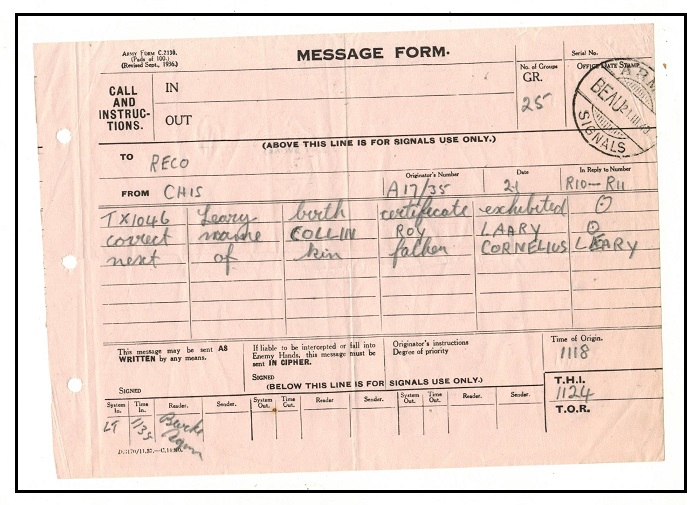 ARMY FORM C.2138.
(Pads of 100.)
(Revised Sept., 1936.)
MESSAGE FORM.
Serial No.
No. of Groups
GR.
25
OFFICE DATE STAMP
ARM
BEAU
SIGNALS
CALL AND INSTRUC-TIONS.
IN
OUT
(ABOVE THIS LINE IS FOR SIGNALS USE ONLY.)
TO RECO
Originator's Number Date In Reply to Number
FROM CHIS A17/35 21 R10—R11
TX1046 Leary birth certificate exhibited ⊙
correct name COLLIN ROY LAARY ⊙
next of kin father CORNELIUS LEARY
This message may be sent AS WRITTEN by any means.
If liable to be intercepted or fall into Enemy Hands, this message must be sent IN CIPHER.
Originator's instructions
Degree of priority
Time of Origin.
1118
SIGNED
SIGNED
(BELOW THIS LINE IS FOR SIGNALS USE ONLY.)
T.H.I.
1124
T.O.R.
System In. Time In. Reader. Sender. System Out. Time Out. Reader Sender. System Out. Time Out. Reader. Sender.
LT 1135 Burke